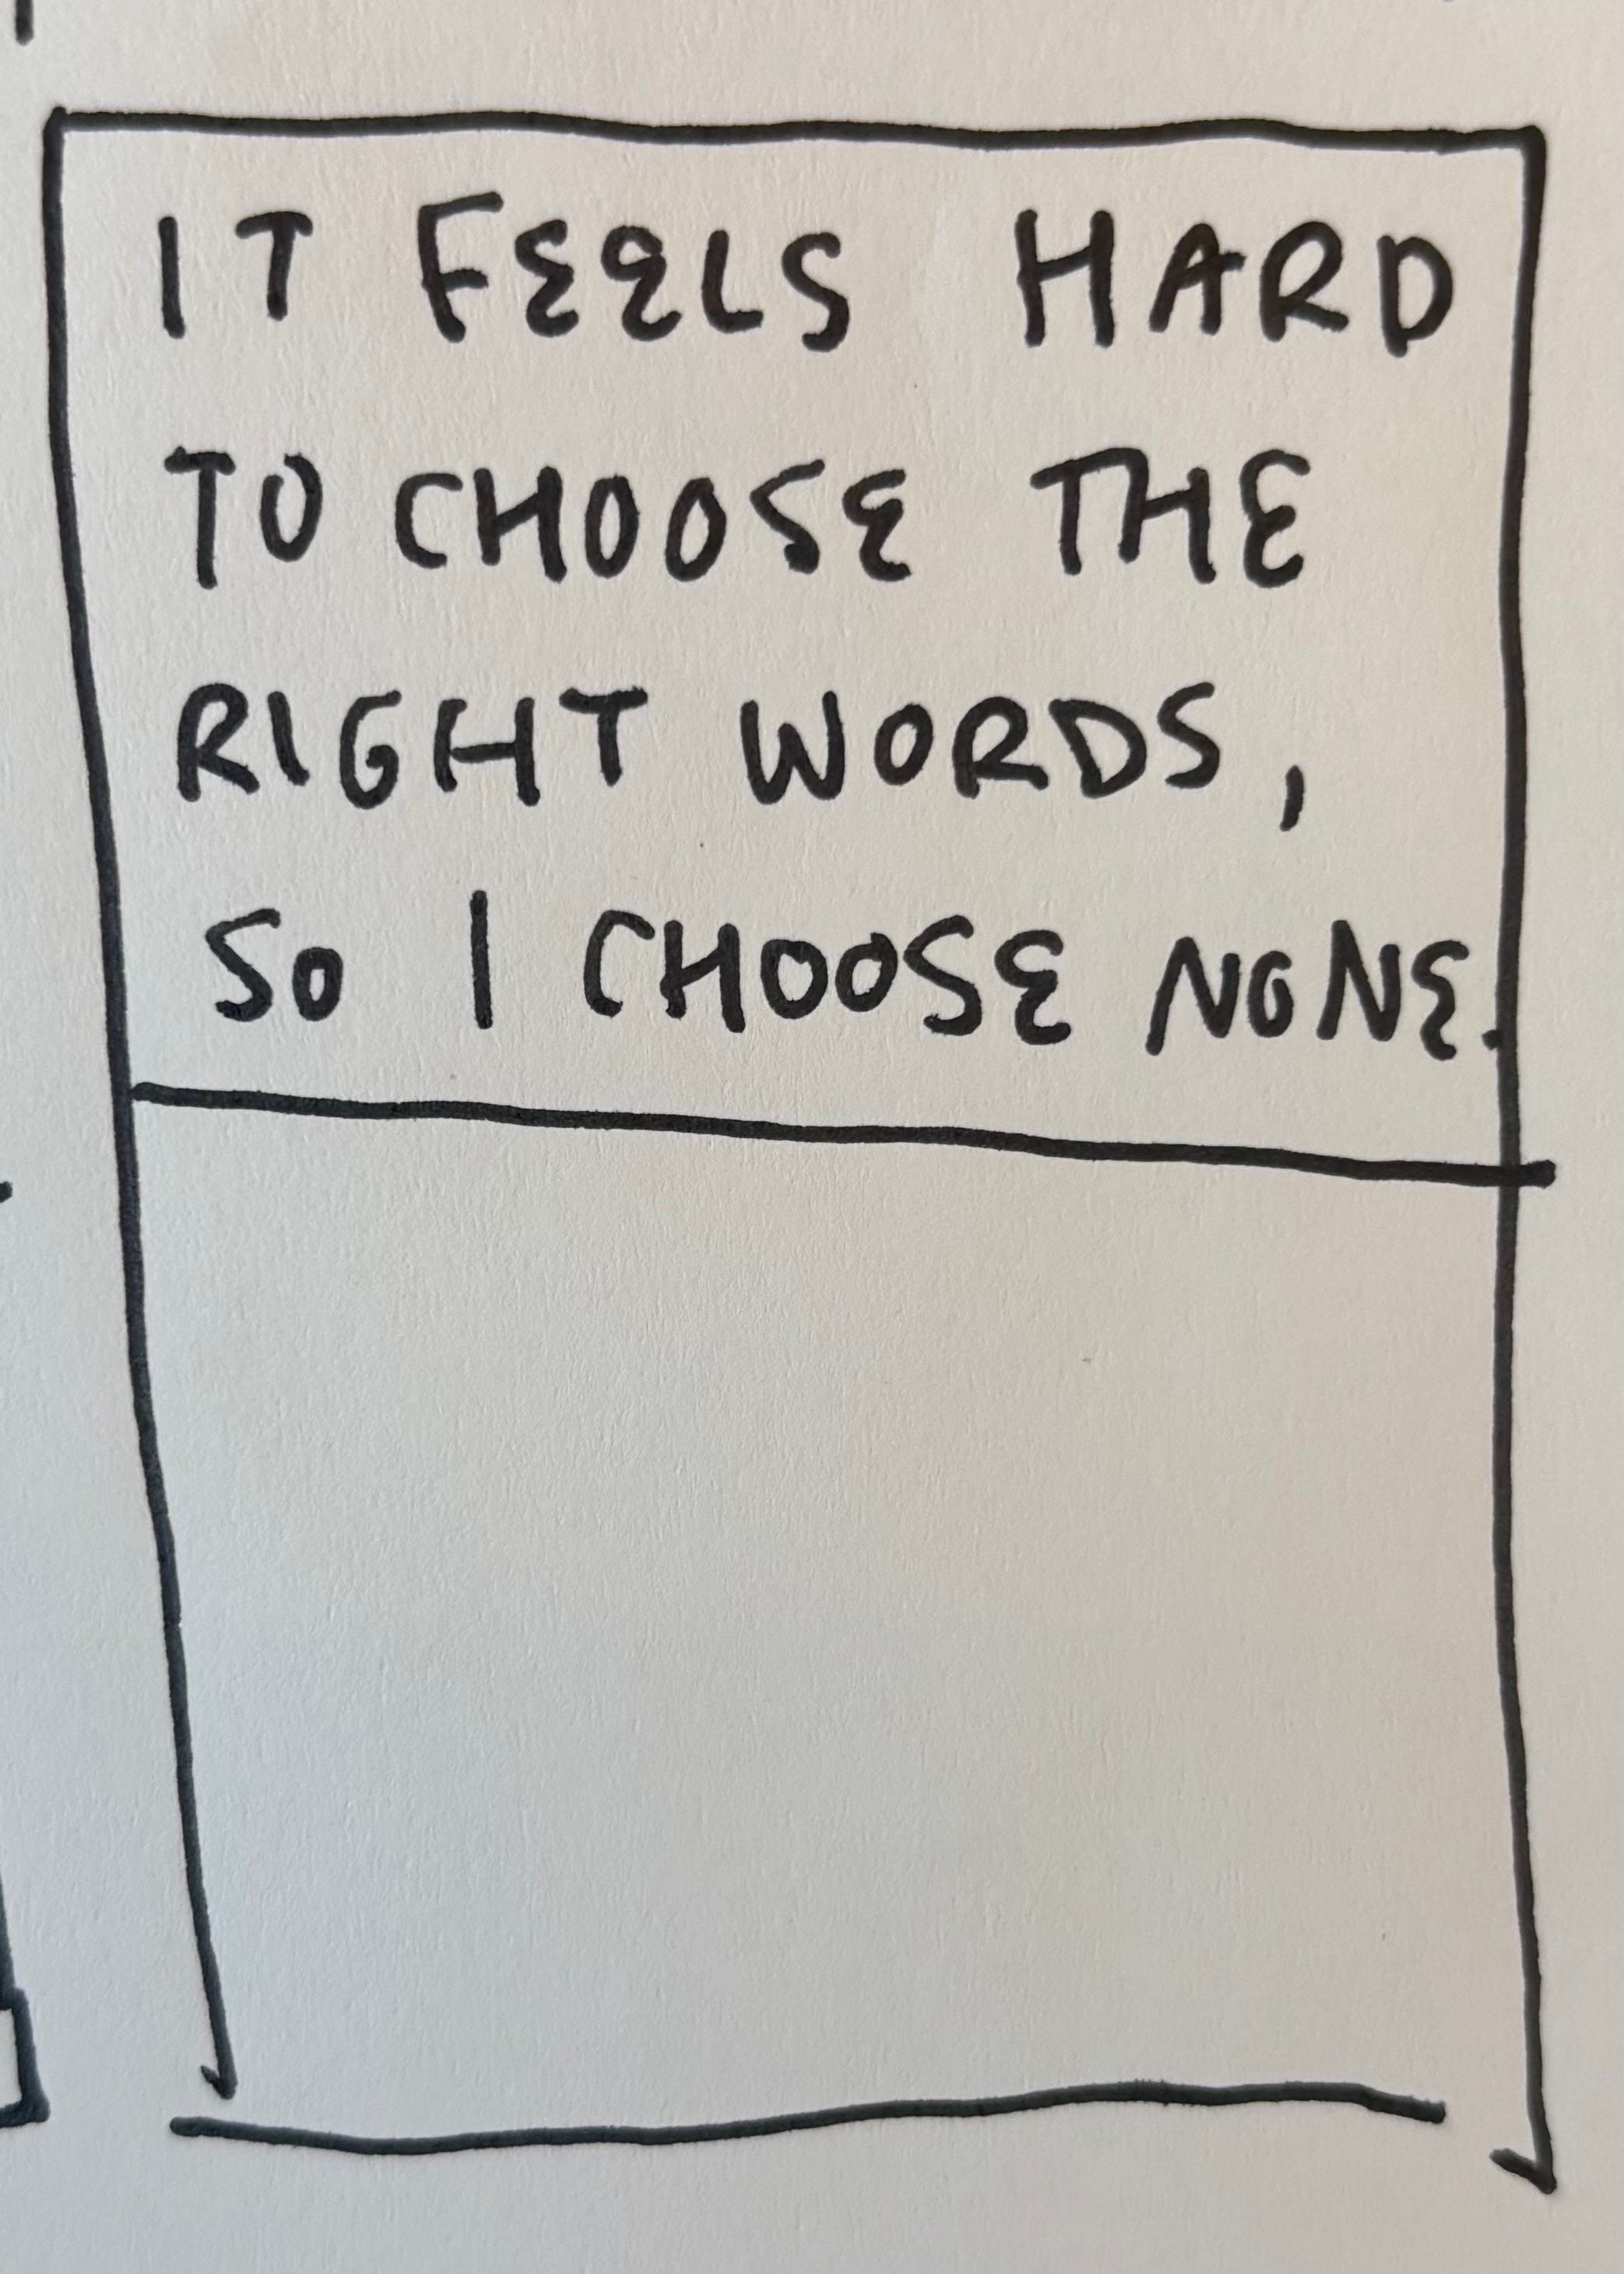 IT FEELS HARD
TO CHOOSE THE
RIGHT WORDS,
SO I CHOOSE NONE.